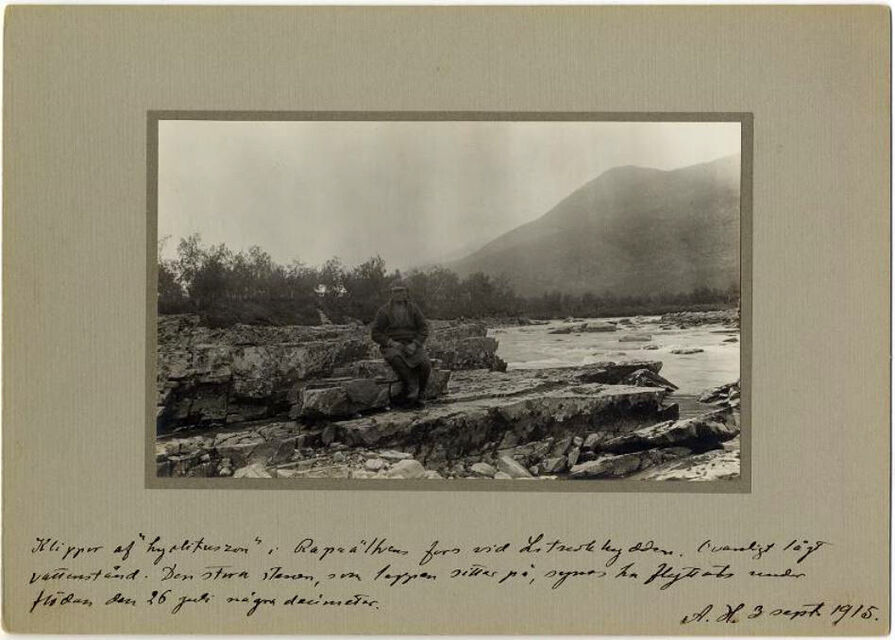 Klippor af "hyolituszon" i Rapaälfvens fors vid Litnokhydden. Ovanligt lågt
vattenstånd. Den stora stenen, som lappen sitter på, synes ha flyttats under
flödan den 26 juli några decimeter.
A. H. 3 sept. 1915.